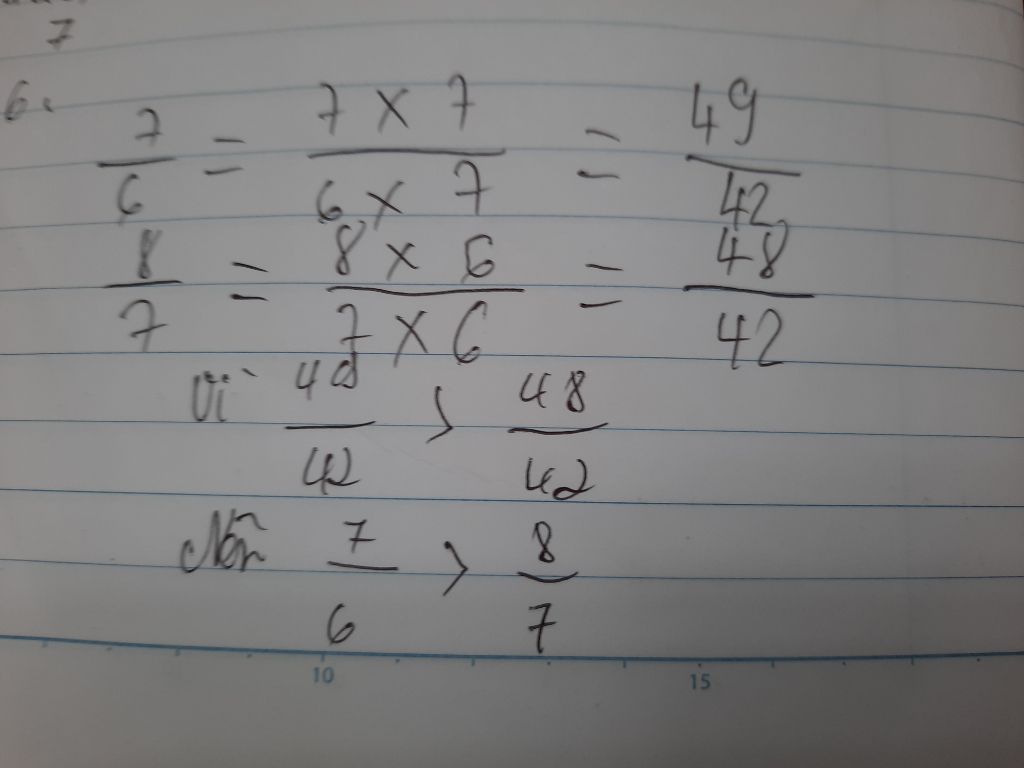 7
6.
7/6 = 7 x 7 / 6 x 7 = 49/42
8/7 = 8 x 6 / 7 x 6 = 48/42
Vì 49/42 > 48/42
Nên 7/6 > 8/7
10 15